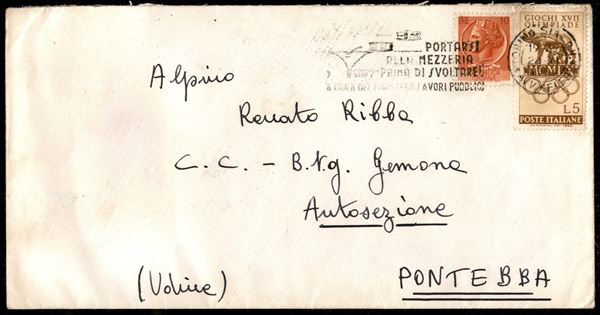 GIOCHI XVII
OLIMPIADE
L.5
POSTE ITALIANE
PORTARSI
ALLA MEZZERIA
PRIMA DI SVOLTARE!
A CURA DEL MINISTERO LAVORI PUBBLICI
Alpino
Renato Ribba
C.C. - B.tg. Gemona
Autosezione
(Udine) PONTEBBA